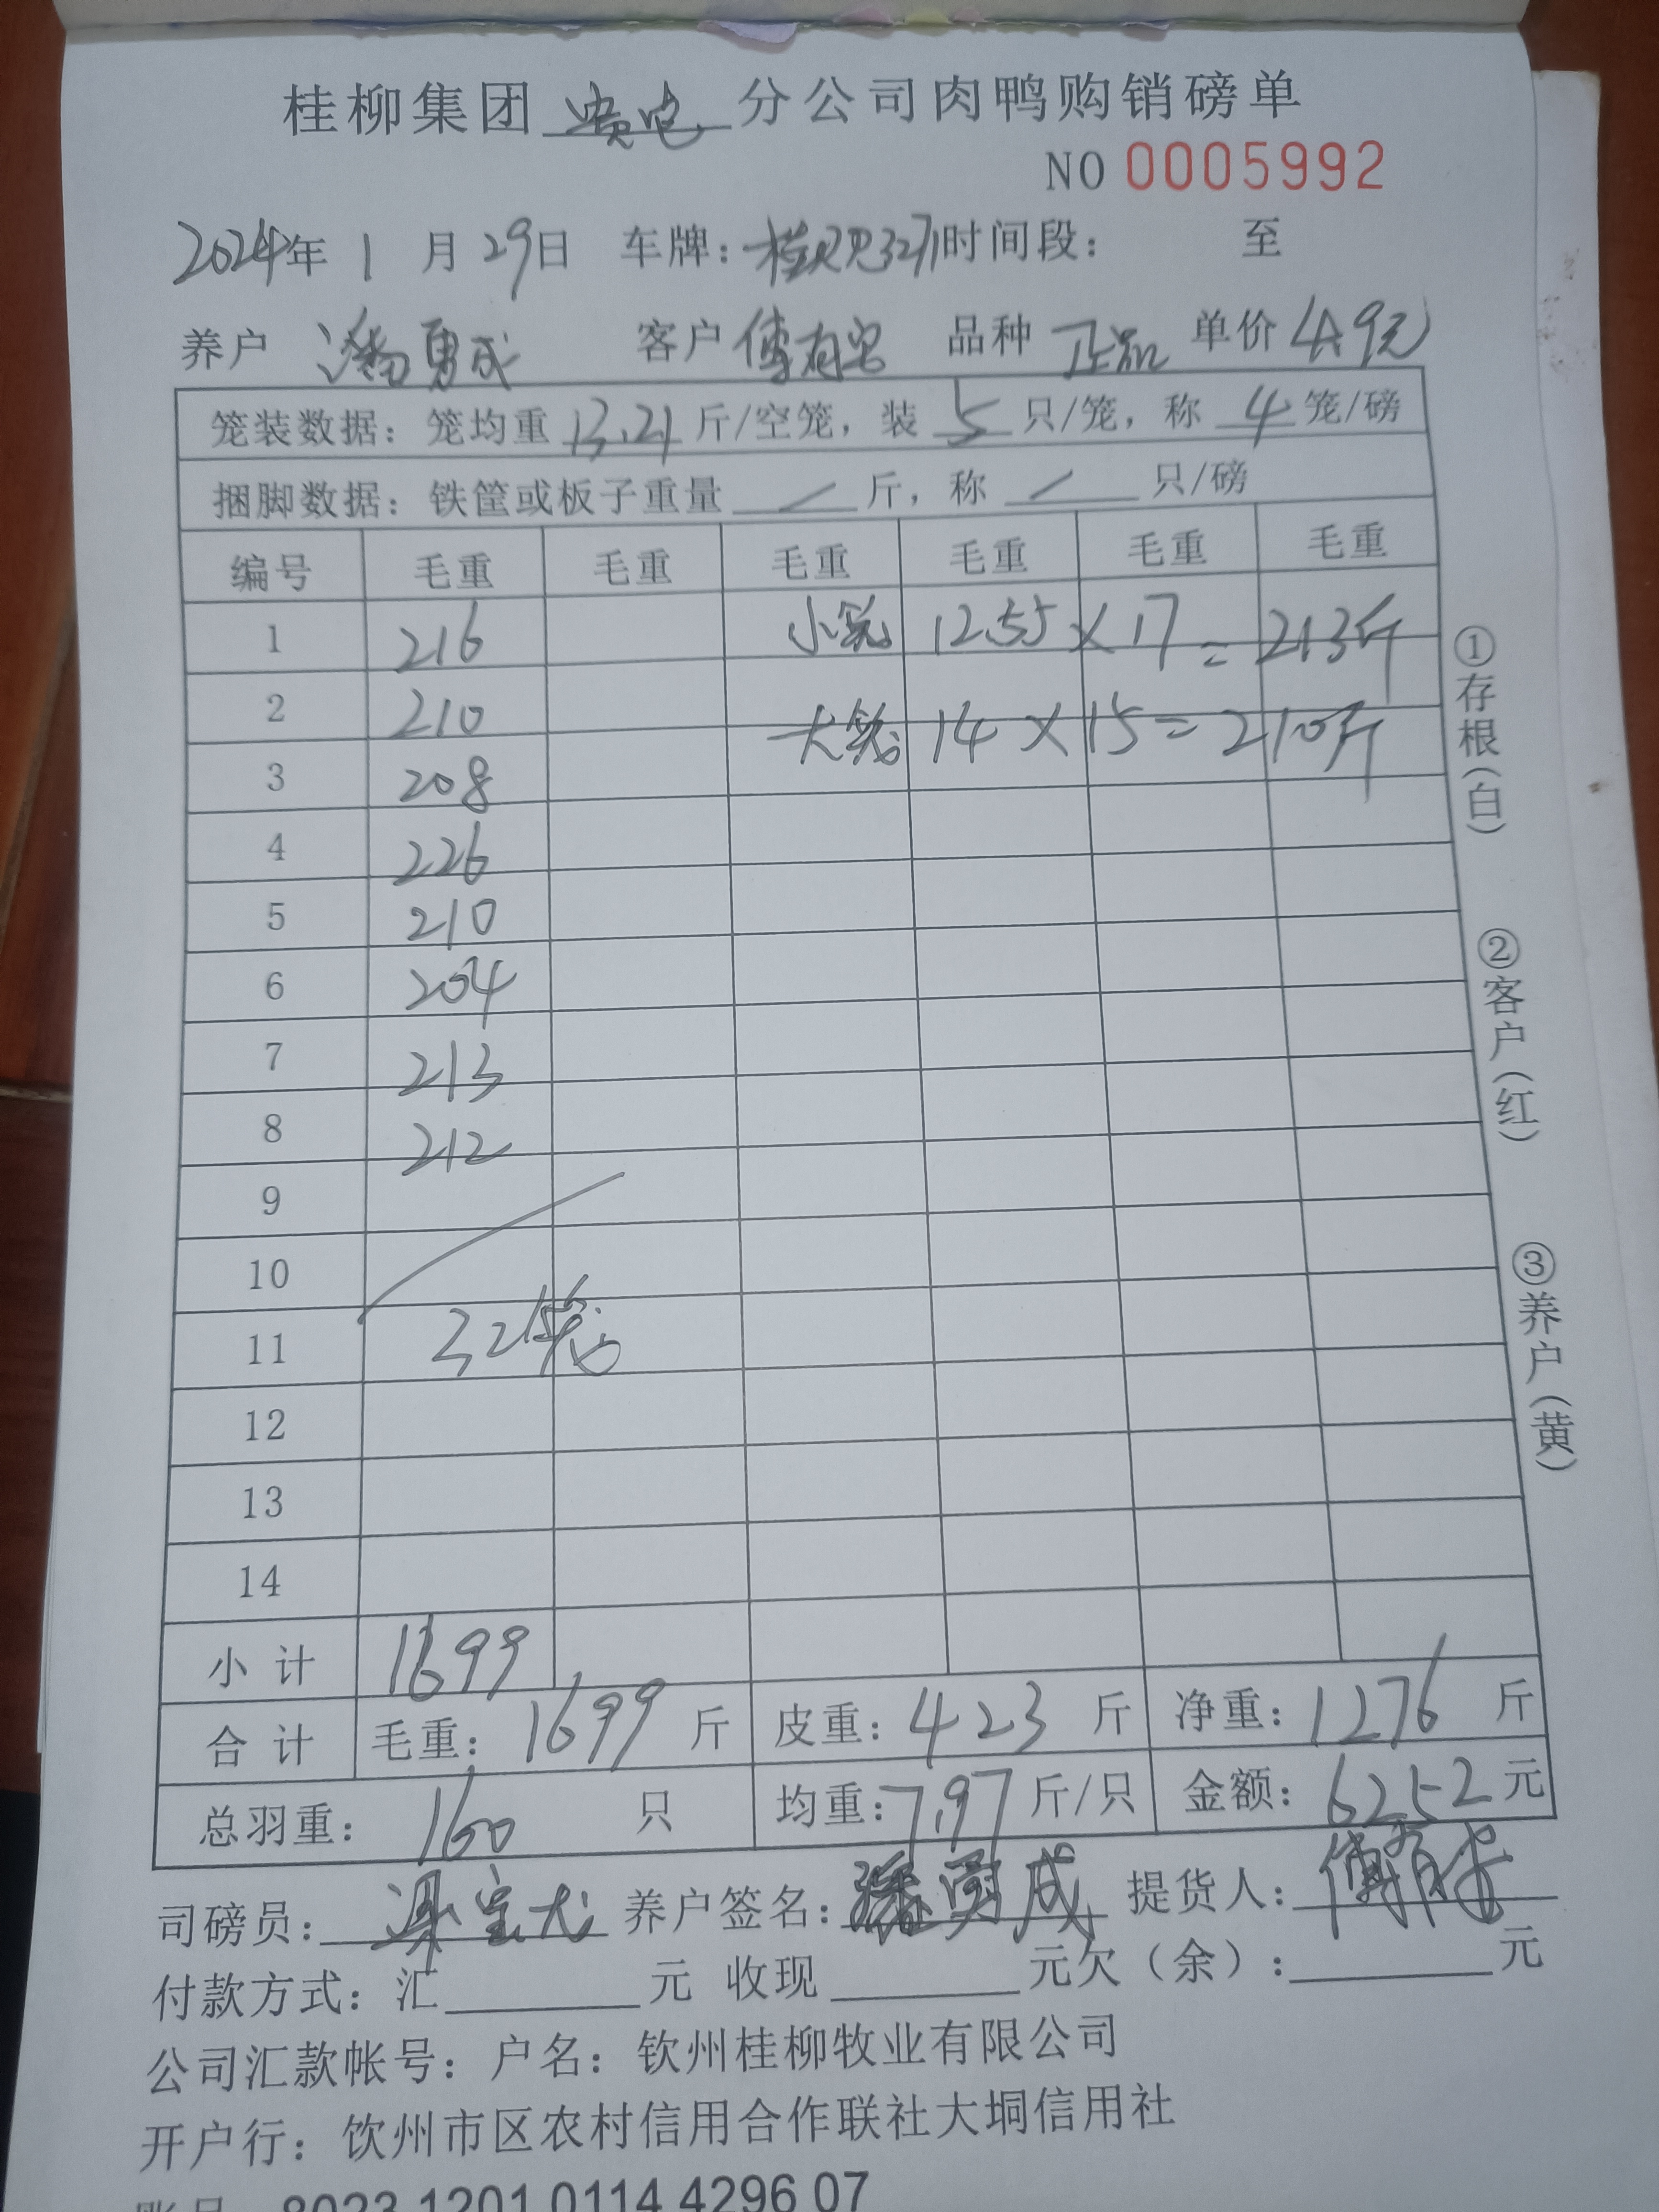 桂柳集团 分公司肉鸭购销磅单
NO 0005992
2024年 1 月 29日 车牌: 时间段: 至
养户 潘勇成 客户 傅有 品种 正品 单价 4.9元
笼装数据: 笼均重 13.21 斤/空笼, 装 5 只/笼, 称 4 笼/磅
捆脚数据: 铁筐或板子重量 / 斤, 称 / 只/磅
编号 毛重 毛重 毛重 毛重 毛重 毛重
1 216 小笼 12.55 × 17 = 213斤
2 210 大笼 14 × 15 = 210斤
3 208
4 226
5 210
6 204
7 213
8 212
9
10
11 32笼
12
13
14
小 计 1699
合 计 毛重: 1699 斤 皮重: 423 斤 净重: 1276 斤
总羽重: 160 只 均重: 7.97 斤/只 金额: 6252 元
司磅员: 养户签名: 潘勇成 提货人: 傅有
付款方式: 汇 元 收现 元欠（余）: 元
公司汇款帐号: 户名: 钦州桂柳牧业有限公司
开户行: 钦州市区农村信用合作联社大垌信用社
账号 8023 1201 0114 4296 07
①存根(白)
②客户(红)
③养户(黄)